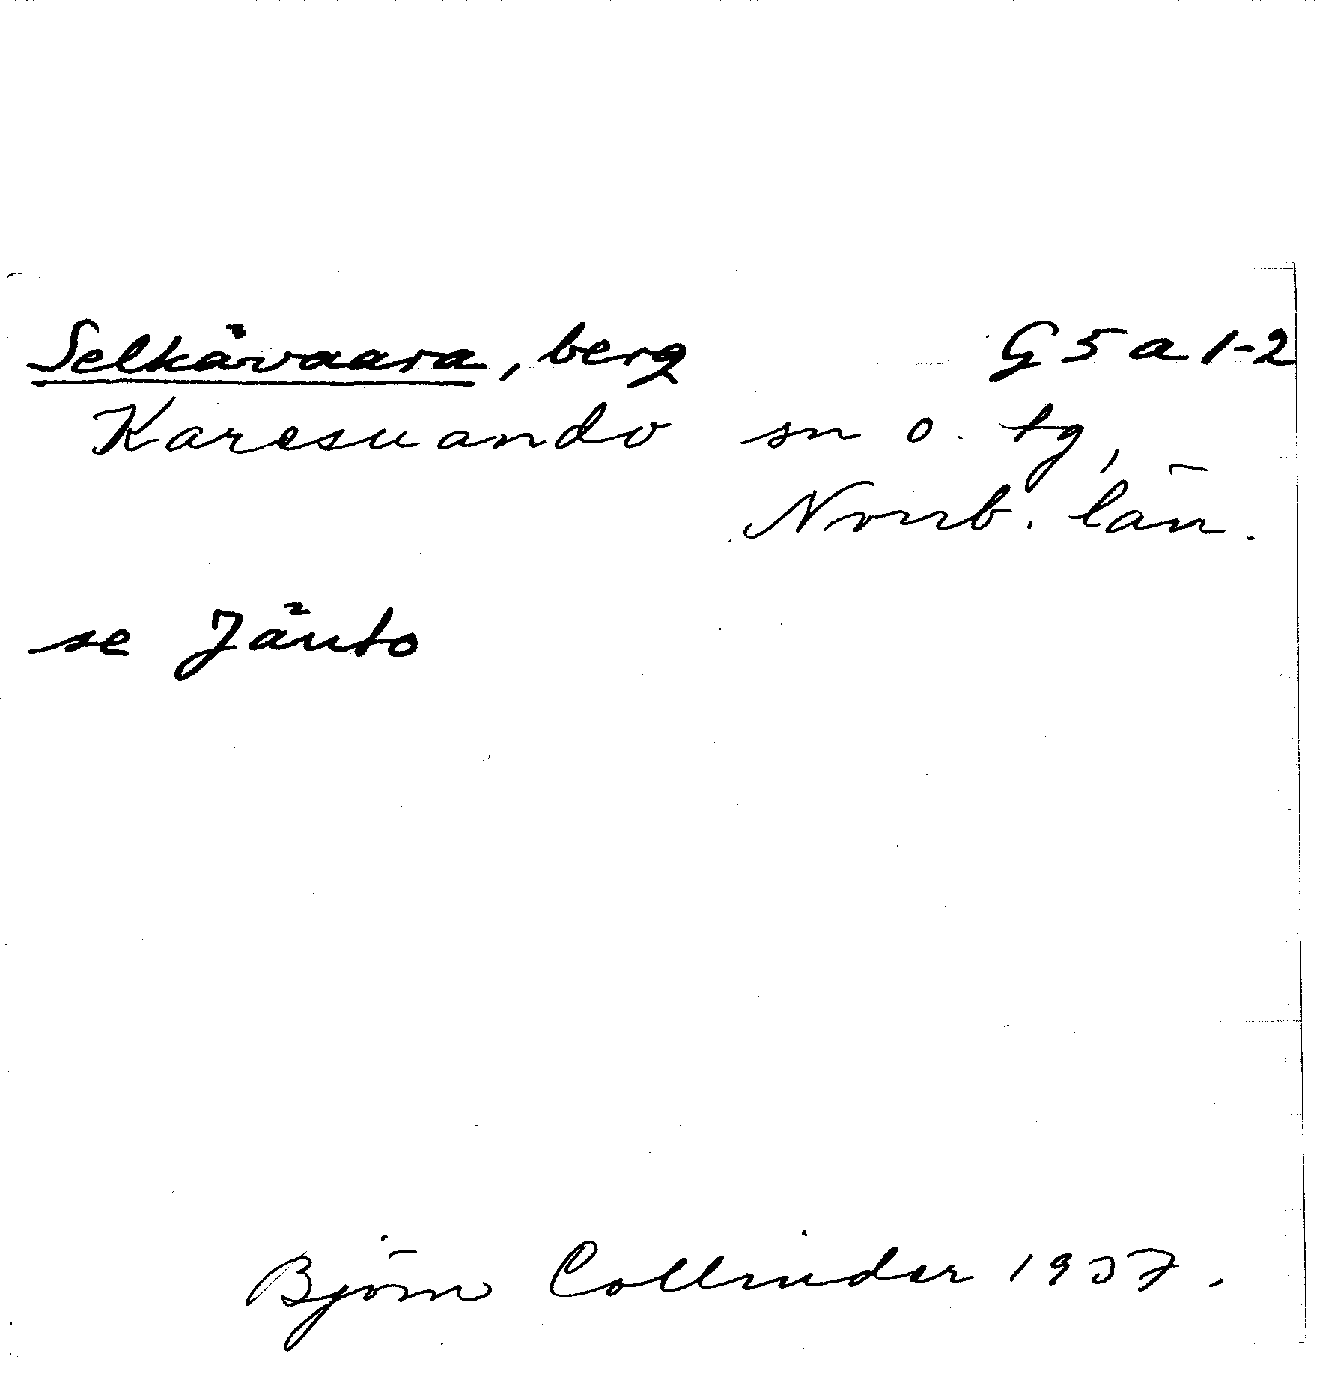 Selkävaara, berg G5a1-2
Karesuando sn o. tg,
Norrb. län.
se Jänto
Björn Collinder 1937.